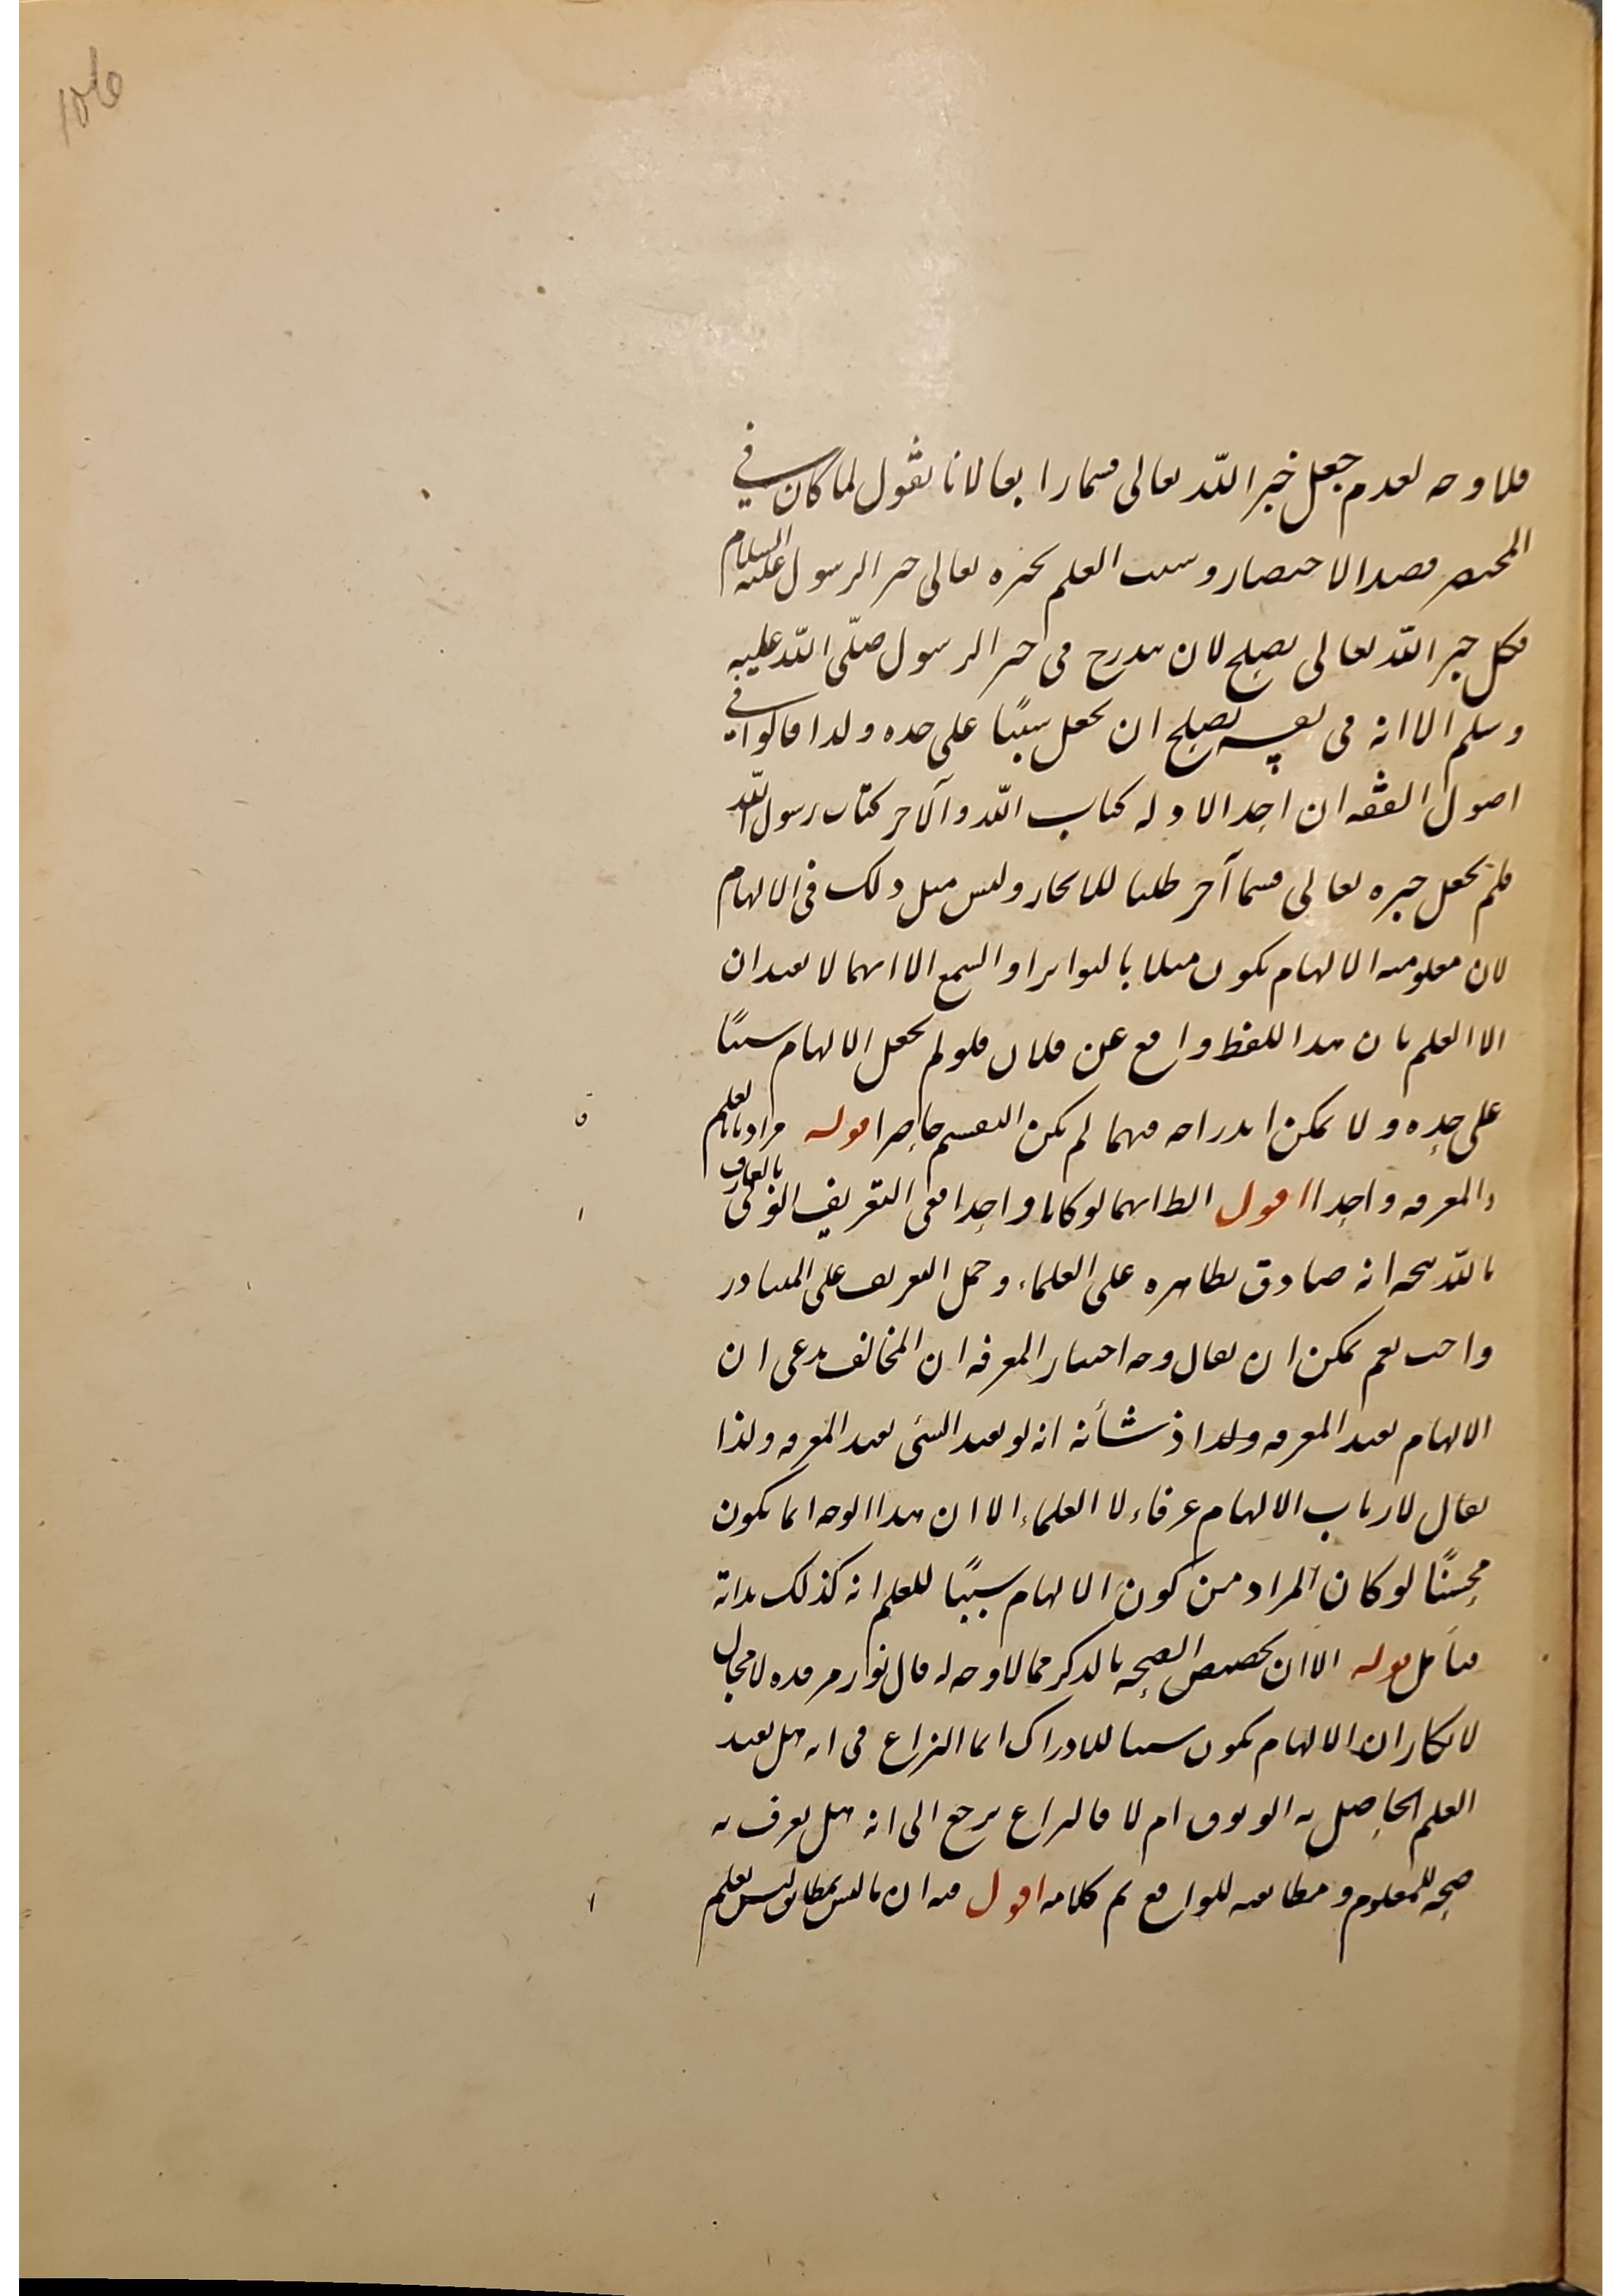 فلا وجه لعدم جعل خبر الله تعالى قسما رابعا لانا نقول لما كان في
المختصر قصد الاختصار وسبب العلم بخبره تعالى خبر الرسول عليه السلام
فكل خبر الله تعالى يصلح لان يندرج في خبر الرسول صلى الله عليه
وسلم الا انه في نفسه يصلح ان يجعل سببًا على حده ولذا قالوا في
اصول الفقه ان احد الادله كتاب الله والآخر كتاب رسول الله
فلم يجعل خبره تعالى قسما آخر طلبا للايجاز وليس مثل ذلك في الالهام
لان معلوميه الالهام يكون مثلا بالتواتر او السمع الا انهما لا يفيدان
الا العلم بان هذا اللفظ واقع عن فلان فلو لم يجعل الالهام سببًا
على حده ولا يمكن اندراجه فيهما لم يكن التقسيم حاصرا قوله مراده بالعلم
والمعرفه واحدا اقول الظ انهما لو كانا واحدا ففي التعريف
بالله سبحانه صادق بظاهره على العلماء وحمل التعريف على المتبادر
واجب نعم يمكن ان يقال وجه اختيار المعرفه ان المخالف يدعى ان
الالهام يفيد المعرفه ولذا اذ شأنه انه لو يفيد الشئ يفيد المعرفه ولذا
يقال لارباب الالهام عرفاء لا العلماء الا ان هذا الوجه انما يكون
محسنًا لو كان المراد من كون الالهام سببًا للعلم انه كذلك بذاته
فتأمل قوله الا ان تخصيص الصحه بالذكر مما لا وجه له قال نور مرقده لا مجال
لانكار ان الالهام يكون سببا للادراك انما النزاع في انه هل يفيد
العلم الحاصل به الوثوق ام لا فالنزاع يرجع الى انه هل يعرف به
صحه للمعلوم ومطابقته للواقع تم كلامه اقول فيه ان ما ليس بمطابق ليس بعلم